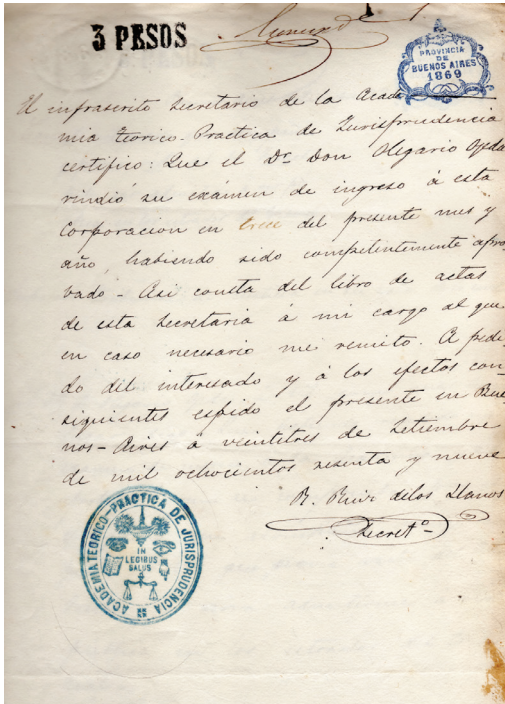 3 PESOS
PROVINCIA
DE
BUENOS AIRES
1869
El infrascrito Secretario de la Acade
mia Teorico-Practica de Jurisprudencia
certifico: Que el Dr. Don Olegario Ojeda
rindió su exámen de ingreso á esta
Corporacion en trece del presente mes y
año, habiendo sido competentemente apro
bado - Asi consta del libro de actas
de esta Secretaria á mi cargo al que
en caso necesario me remito. A pedi
do del interesado y á los efectos con-
siguientes espido el presente en Bue
nos-Aires á veintitres de Setiembre
de mil ochocientos sesenta y nueve
R. Ruiz de los Llanos
Secreto
ACADEMIA TEORICO-PRACTICA DE JURISPRUDENCIA
IN
LEGIBUS
SALUS